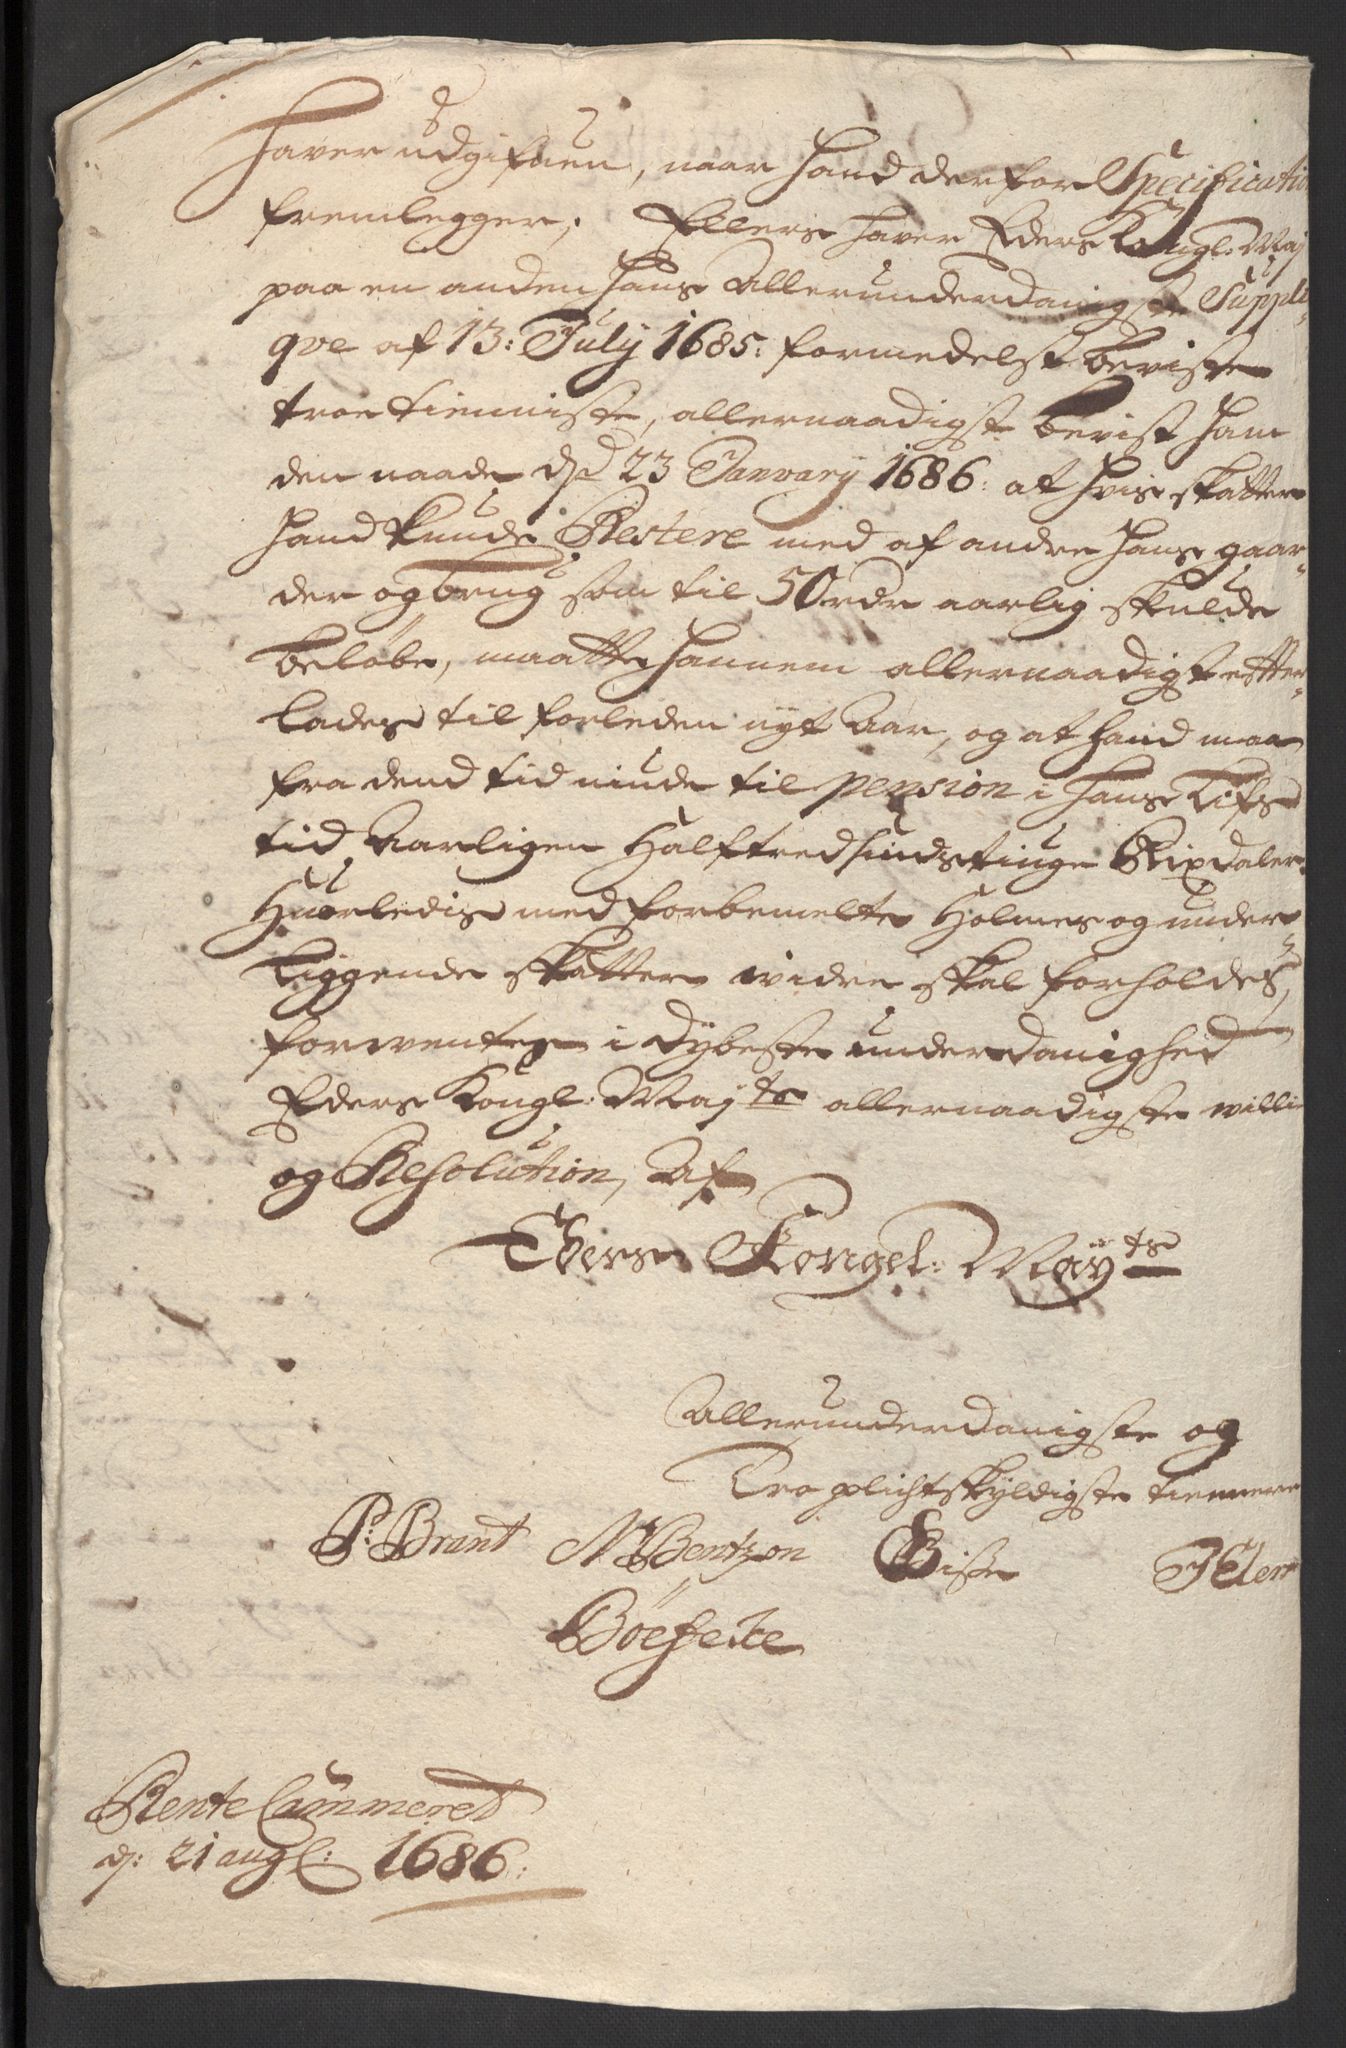 haver udgifuen, naar hand derfor Specificatio
fremlegger, Ellers haver Eders Kongl: May
paa en anden hans Allerunderdanigste Suppli-
qve af 13: July 1685: formedelst beviste
troe tienniste, allernaadigst bevist ham
den naade dend 23 January 1686: at hvis skatter
hand kunde Restere med af andre hans gaar-
der og brug som til 50 rdr aarlig skulde
beløbe, maatte hannem allernaadigst efter-
lades til forleden nyt Aar, og at hand maa
fra dend tid niude til pension i hans Lifs
tid Aarligen Halftredsindstiuge Rixdaler.
Huorledis med forbemelte Holmes og under
liggende skatter widre skal forholdes,
forwentes i dybeste underdanighed
Eders Kongl: Mayts allernaadigste willie
og Resolution, Af
Eders Kongel: Mayts
Allerunderdanigste og
Tro plichtskyldigste tiennere
P: Brant M Bentzon Gise
Rente Cammeret
d: 21 aug: 1686: